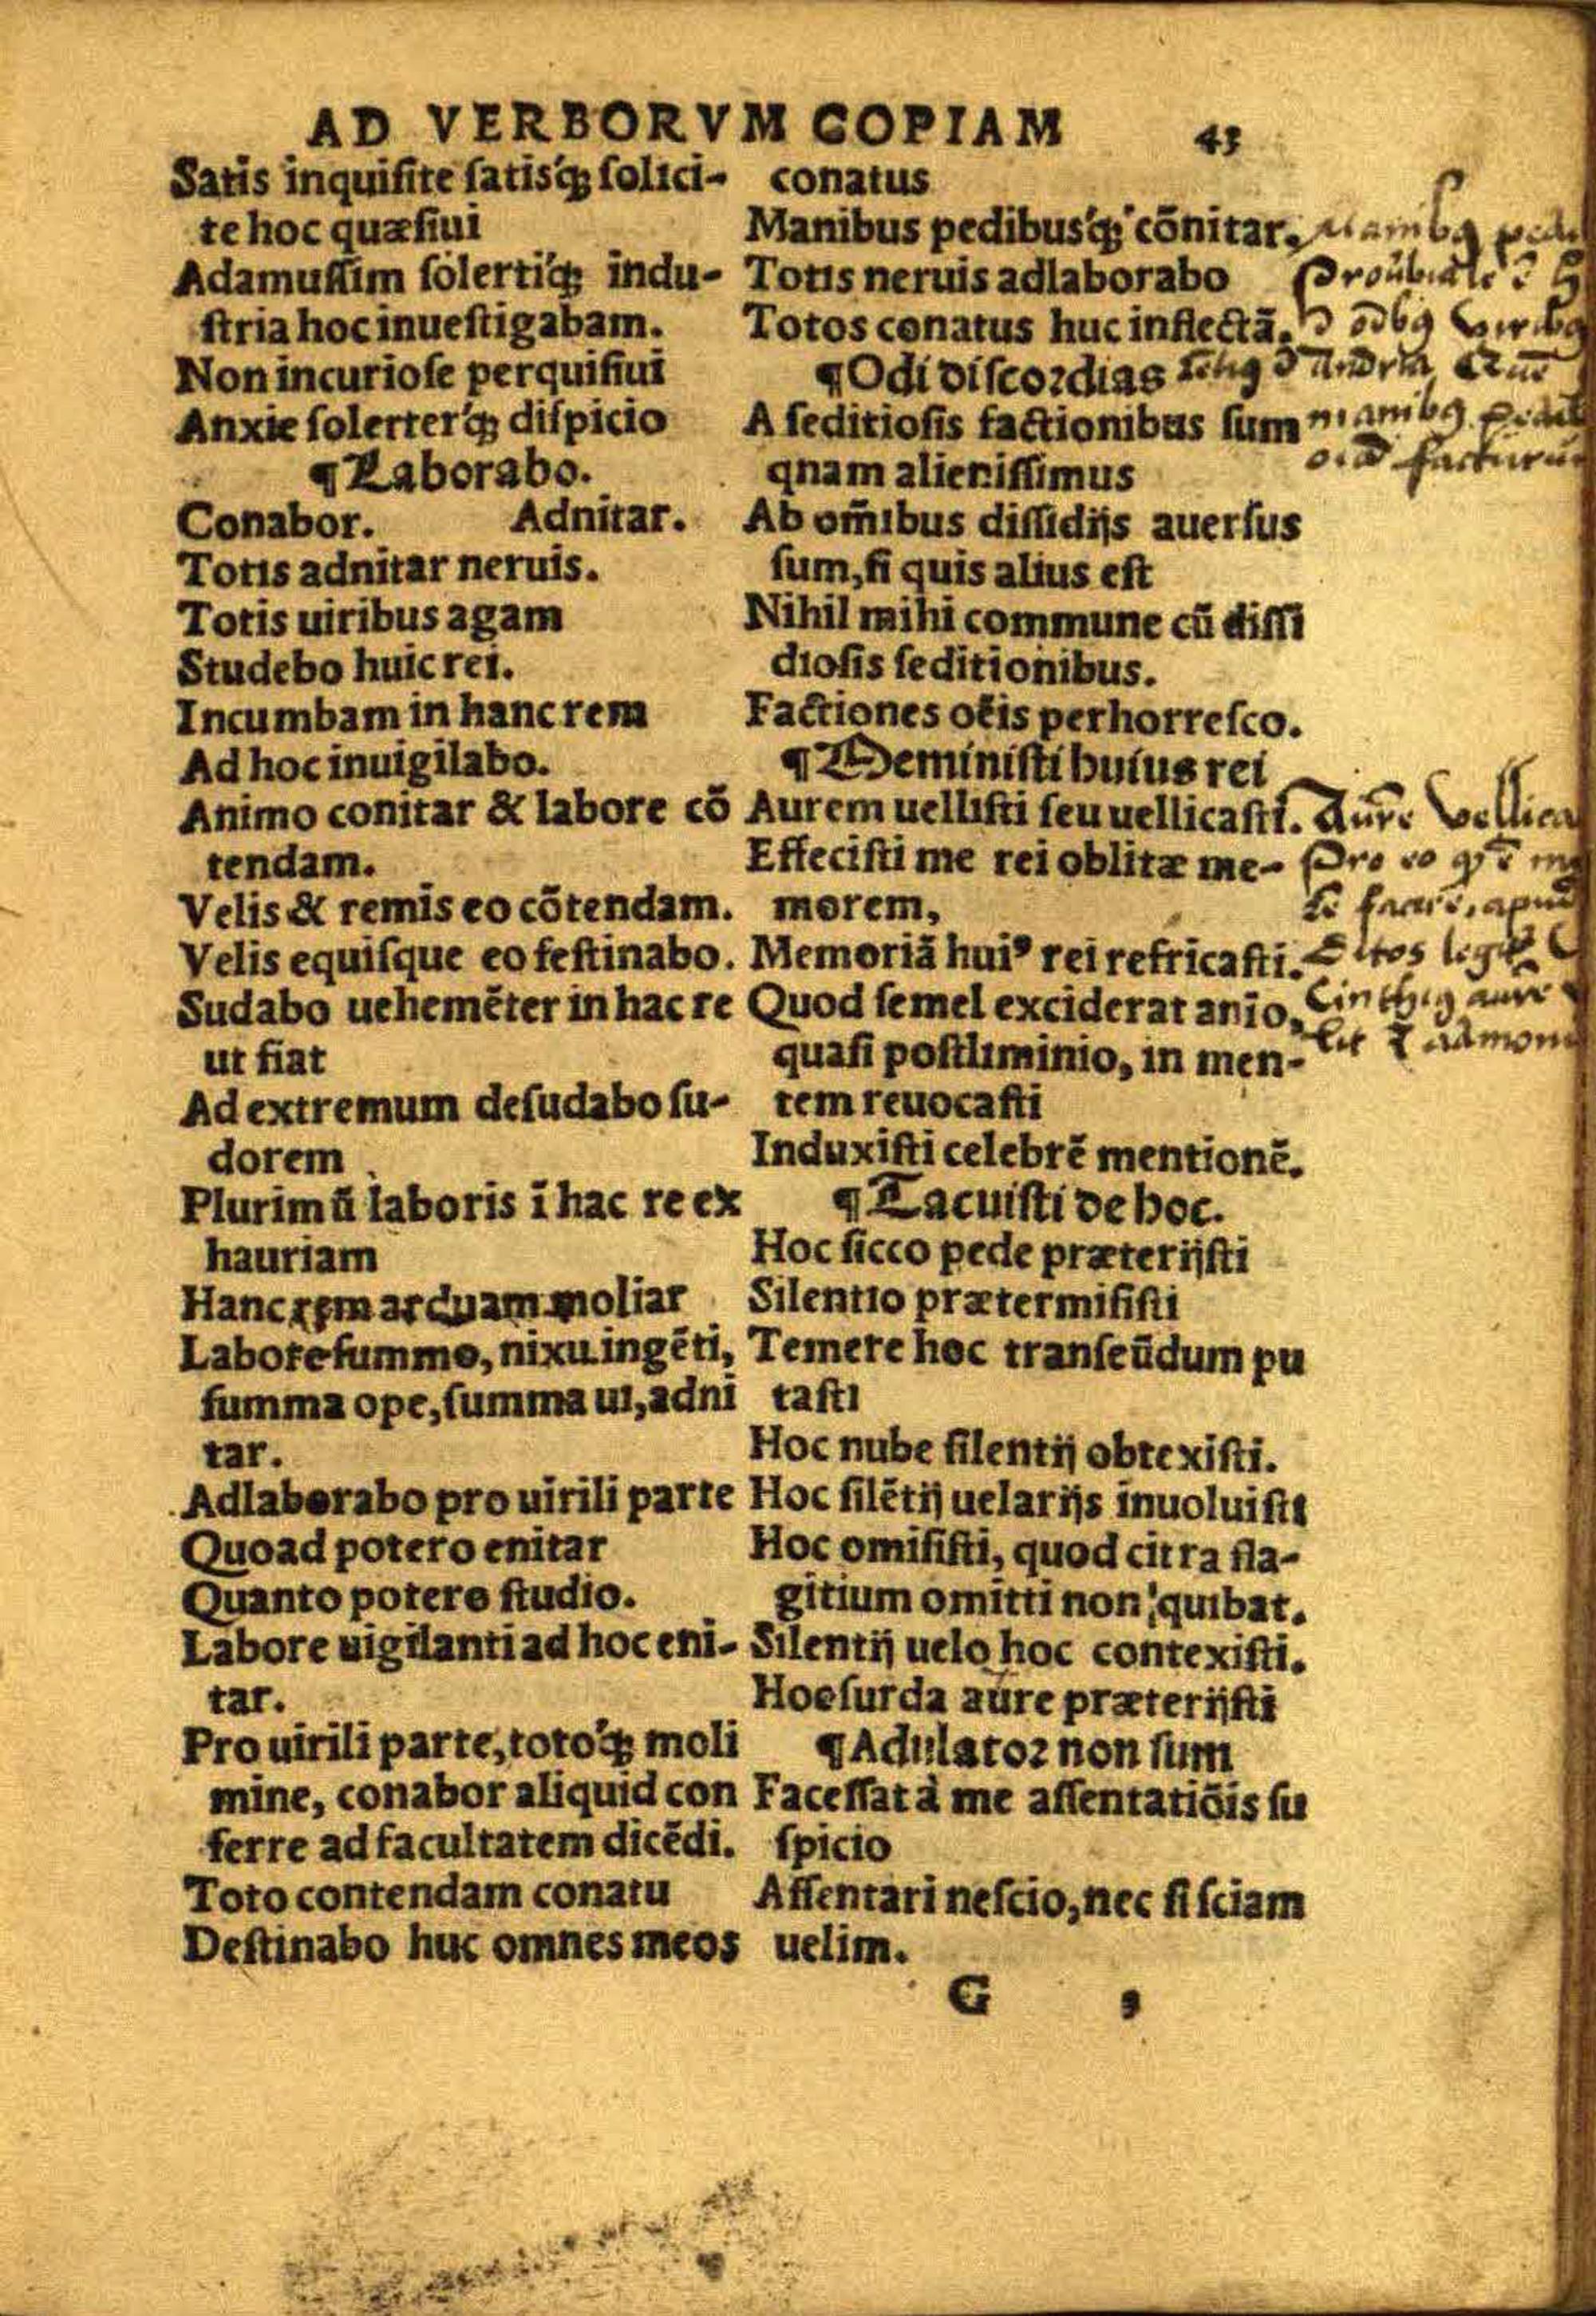 AD VERBORVM COPIAM 43
Satis inquiſite ſatisq́ꝫ ſolici-
te hoc quæſiui
Adamuſſim ſolertiq́ꝫ indu-
ſtria hoc inueſtigabam.
Non incurioſe perquiſiui
Anxie ſolerterq́ꝫ diſpicio
¶Laborabo.
Conabor. Adnitar.
Totis adnitar neruis.
Totis uiribus agam
Studebo huic rei.
Incumbam in hanc rem
Ad hoc inuigilabo.
Animo conitar & labore cõ
tendam.
Velis & remis eo cõtendam.
Velis equiſque eo feſtinabo.
Sudabo uehemẽter in hac re
ut fiat
Ad extremum deſudabo ſu-
dorem
Plurimũ laboris ĩ hac re ex
hauriam
Hanc rem arduam moliar
Labore ſummo, nixu ingẽti,
ſumma ope, ſumma ui, adni
tar.
Adlaborabo pro uirili parte
Quoad potero enitar
Quanto potero ſtudio.
Labore uigilanti ad hoc eni-
tar.
Pro uirili parte, totoq́ꝫ moli
mine, conabor aliquid con
ferre ad facultatem dicẽdi.
Toto contendam conatu
Deſtinabo huc omnes meos
conatus
Manibus pedibusq́ꝫ cõnitar.
Totis neruis adlaborabo
Totos conatus huc inflectã.
¶Odi diſcordias
A ſeditioſis factionibus ſum
qnam alieniſſimus
Ab om̃ibus diſſidijs auerſus
ſum, ſi quis alius eſt
Nihil mihi commune cũ diſſi
dioſis ſeditionibus.
Factiones oẽis perhorreſco.
¶Meminiſti huius rei
Aurem uelliſti ſeu uellicaſti.
Effeciſti me rei oblitæ me-
morem,
Memoriã huiꝰ rei refricaſti.
Quod ſemel exciderat anĩo,
quaſi poſtliminio, in men-
tem reuocaſti
Induxiſti celebrẽ mentionẽ.
¶Tacuiſti de hoc.
Hoc ſicco pede præterijſti
Silentio prætermiſiſti
Temere hoc tranſeũdum pu
taſti
Hoc nube ſilentij obtexiſti.
Hoc ſilẽtij uelarijs inuoluiſti
Hoc omiſiſti, quod citra fla-
gitium omitti non quibat.
Silentij uelo hoc contexiſti.
Hoc ſurda aure præterijſti
¶Adulator non ſum
Faceſſat à me aſſentatiõis ſu
ſpicio
Aſſentari neſcio, nec ſi ſciam
uelim.
G ,